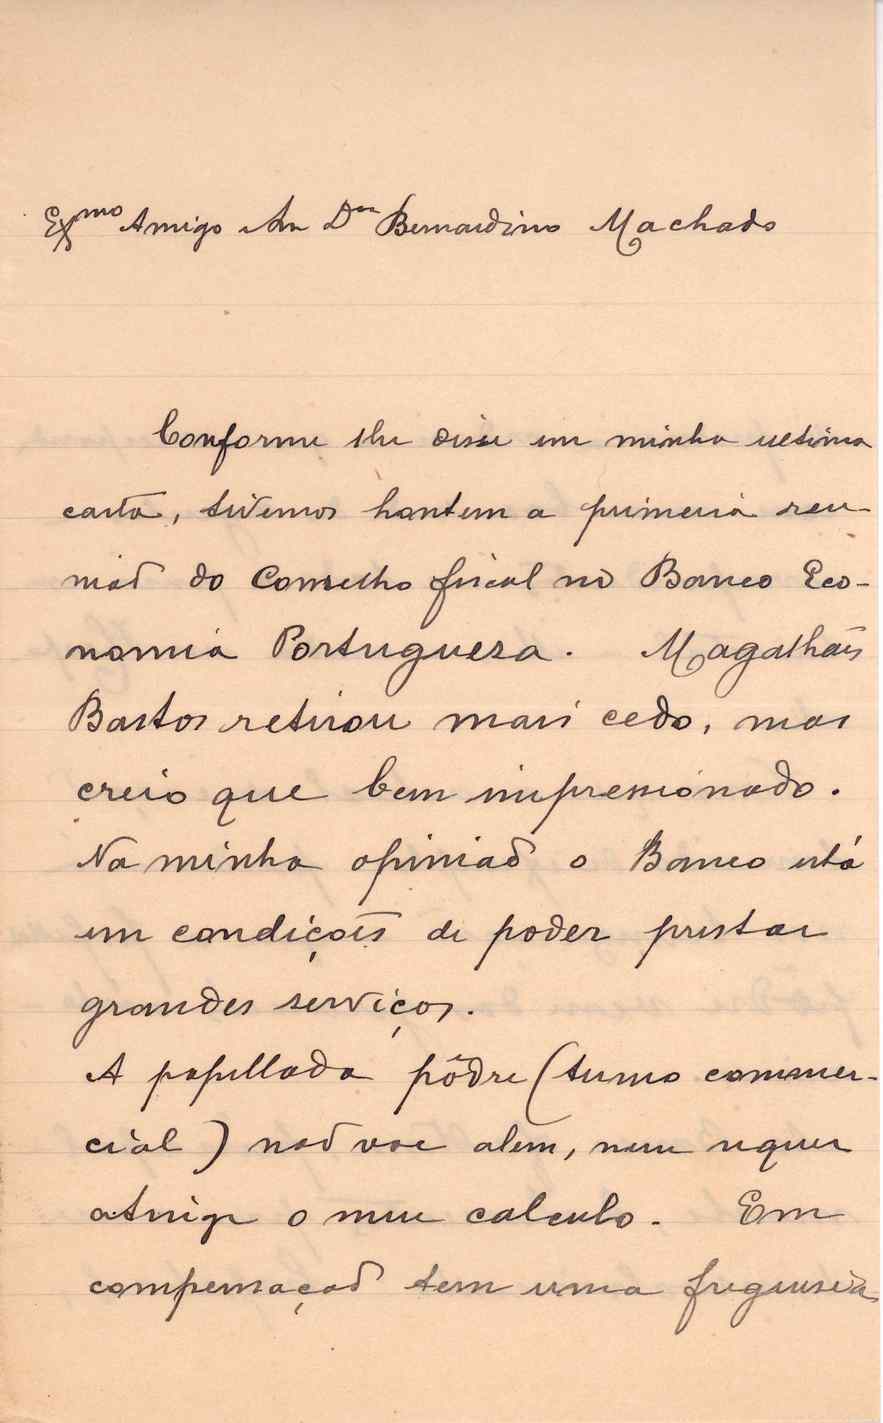 Exmo Amigo Snr Dor Bernardino Machado
Conforme lhe disse em minha ultima
carta, tivemos hontem a primeira reu-
nião do Conselho fiscal no Banco Eco-
nomia Portugueza. Magalhães
Bastos retirou mais cedo, mas
creio que bem impressionado.
Na minha opinião o Banco está
em condições de poder prestar
grandes serviços.
A papellada pôdre (termo commer-
cial) não vae alem, nem sequer
atinge o meu calculo. Em
compensação tem uma freguesia